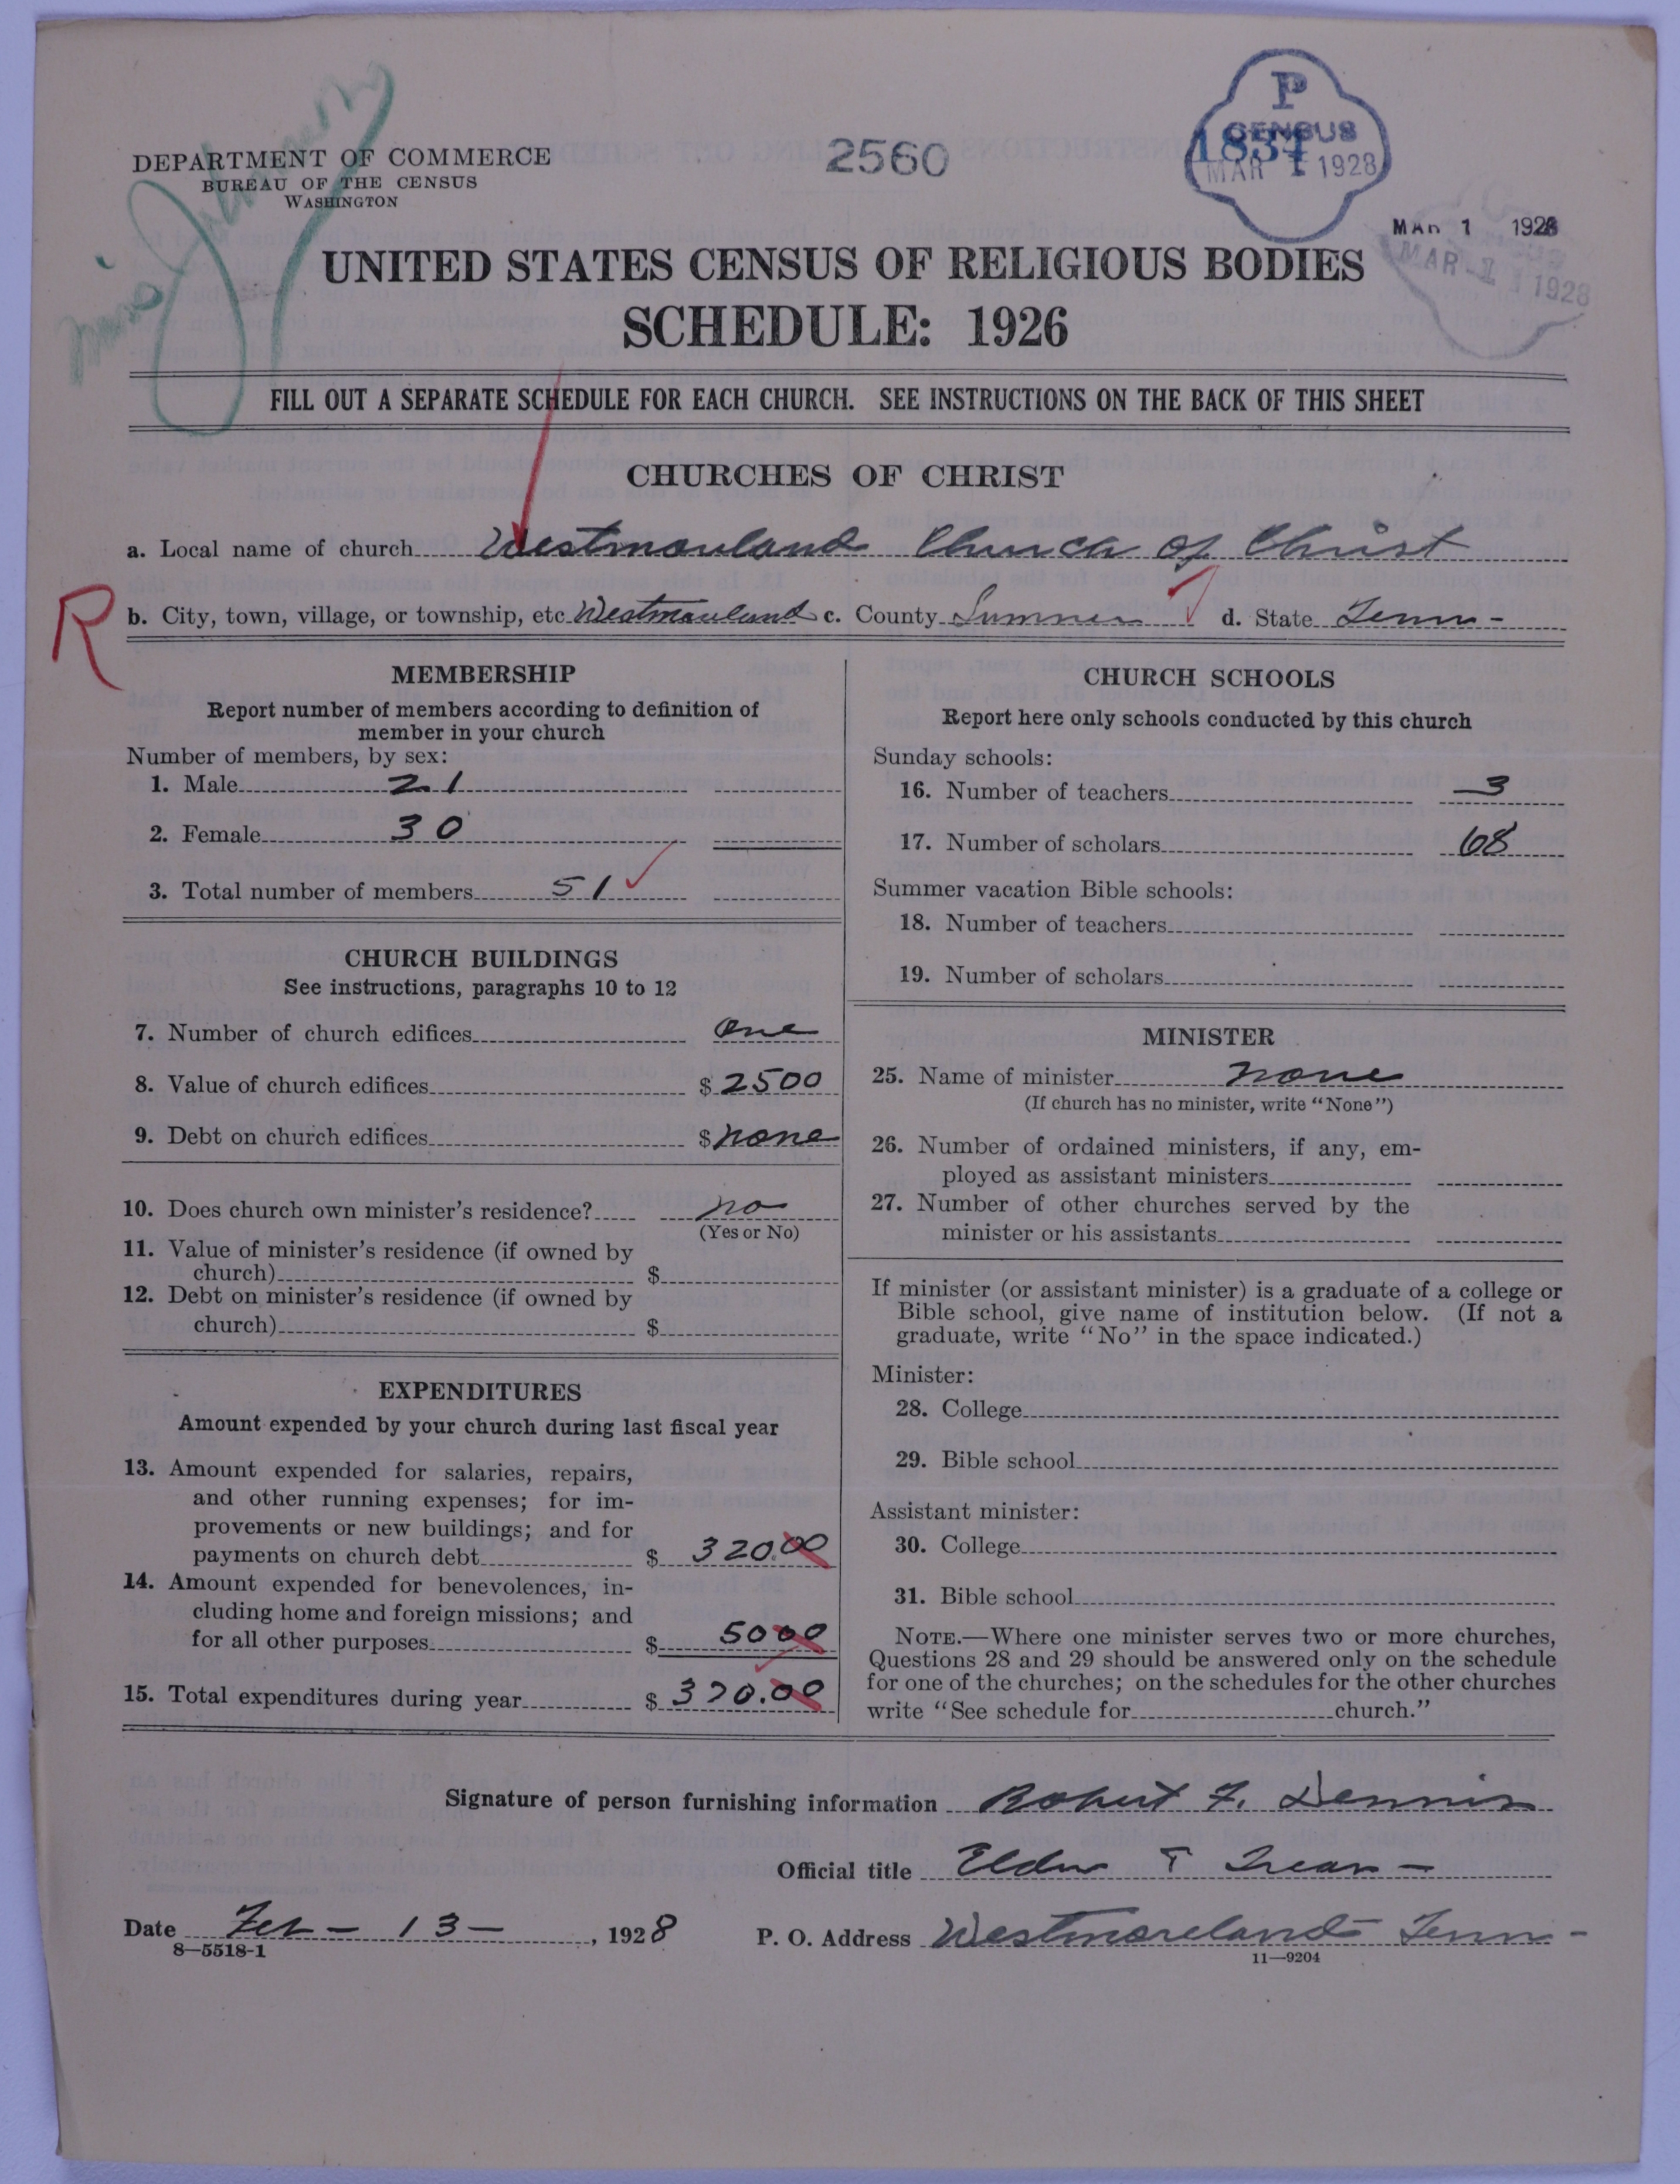 DEPARTMENT OF COMMERCE
BUREAU OF THE CENSUS
WASHINGTON
2560
P
CENSUS
1834
MAR 1 1928
MAR 1 1928
MAR 1 1928
UNITED STATES CENSUS OF RELIGIOUS BODIES
SCHEDULE: 1926
FILL OUT A SEPARATE SCHEDULE FOR EACH CHURCH. SEE INSTRUCTIONS ON THE BACK OF THIS SHEET
CHURCHES OF CHRIST
a. Local name of church Westmoreland Church of Christ
R
b. City, town, village, or township, etc. Westmoreland c. County Sumner d. State Tenn-
MEMBERSHIP
Report number of members according to definition of
member in your church
Number of members, by sex:
1. Male 21
2. Female 30
3. Total number of members 51
CHURCH BUILDINGS
See instructions, paragraphs 10 to 12
7. Number of church edifices One
8. Value of church edifices $ 2500
9. Debt on church edifices $ none
10. Does church own minister's residence? no
(Yes or No)
11. Value of minister's residence (if owned by
church) $
12. Debt on minister's residence (if owned by
church) $
EXPENDITURES
Amount expended by your church during last fiscal year
13. Amount expended for salaries, repairs,
and other running expenses; for im-
provements or new buildings; and for
payments on church debt $ 320.00
14. Amount expended for benevolences, in-
cluding home and foreign missions; and
for all other purposes $ 5000
15. Total expenditures during year $ 370.00
CHURCH SCHOOLS
Report here only schools conducted by this church
Sunday schools:
16. Number of teachers 3
17. Number of scholars 68
Summer vacation Bible schools:
18. Number of teachers
19. Number of scholars
MINISTER
25. Name of minister none
(If church has no minister, write "None")
26. Number of ordained ministers, if any, em-
ployed as assistant ministers
27. Number of other churches served by the
minister or his assistants
If minister (or assistant minister) is a graduate of a college or
Bible school, give name of institution below. (If not a
graduate, write "No" in the space indicated.)
Minister:
28. College
29. Bible school
Assistant minister:
30. College
31. Bible school
NOTE.—Where one minister serves two or more churches,
Questions 28 and 29 should be answered only on the schedule
for one of the churches; on the schedules for the other churches
write "See schedule for church."
Signature of person furnishing information Robert F. Dennis
Official title Elder & Treas-
Date Feb - 13 -, 1928 P. O. Address Westmoreland Tenn-
8—5518-1
11—9204